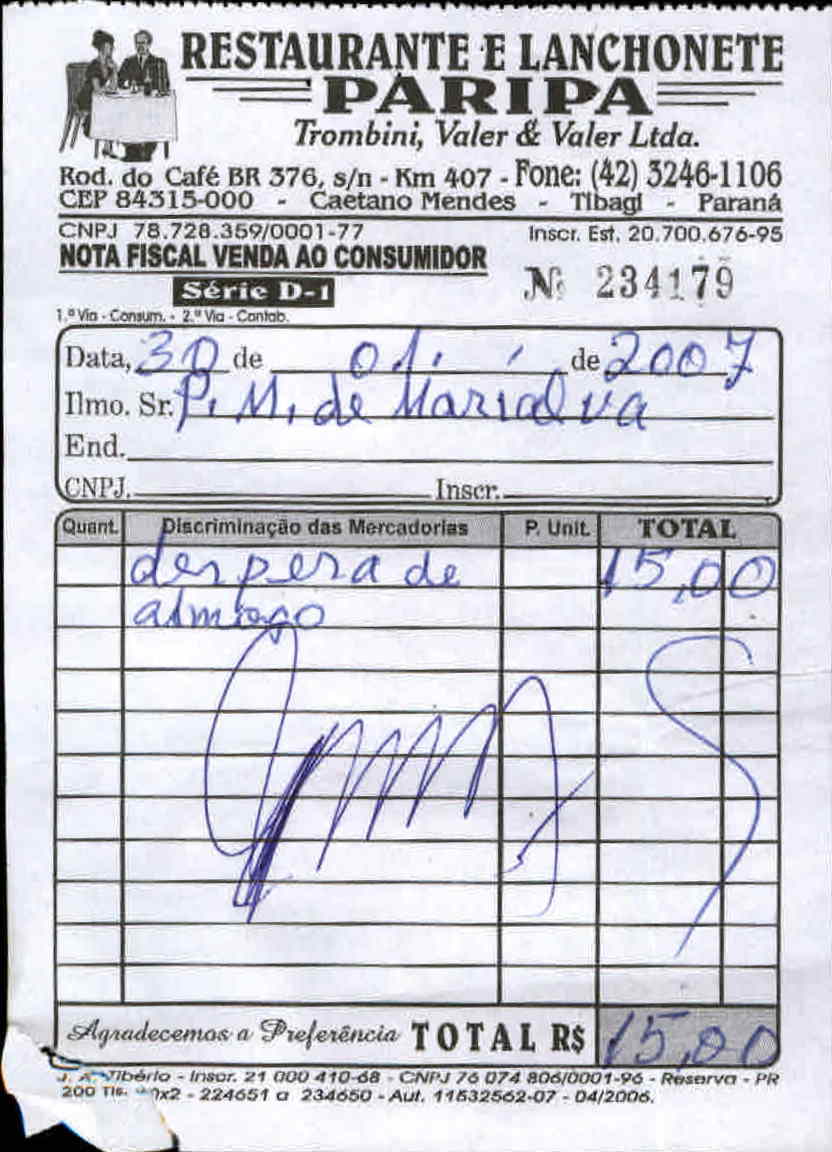 RESTAURANTE E LANCHONETE
PARIPA
Trombini, Valer & Valer Ltda.
Rod. do Café BR 376, s/n - Km 407 - Fone: (42) 3246-1106
CEP 84315-000 - Caetano Mendes - Tibagi - Paraná
CNPJ 78.728.359/0001-77 Inscr. Est. 20.700.676-95
NOTA FISCAL VENDA AO CONSUMIDOR
Série D-1 Nº 234179
1.ª Via - Consum. - 2.ª Via - Contab.
Data, 30 de 01. de 2007
Ilmo. Sr. P. M. de Marialva
End.
CNPJ. Inscr.
Quant. Discriminação das Mercadorias P. Unit. TOTAL
despesa de 15,00
almoço
Agradecemos a Preferência TOTAL R$ 15,00
J. A. Tibério - Inscr. 21 000 410-68 - CNPJ 76 074 806/0001-96 - Reserva - PR
200 Tls. 50x2 - 224651 a 234650 - Aut. 11532562-07 - 04/2006.